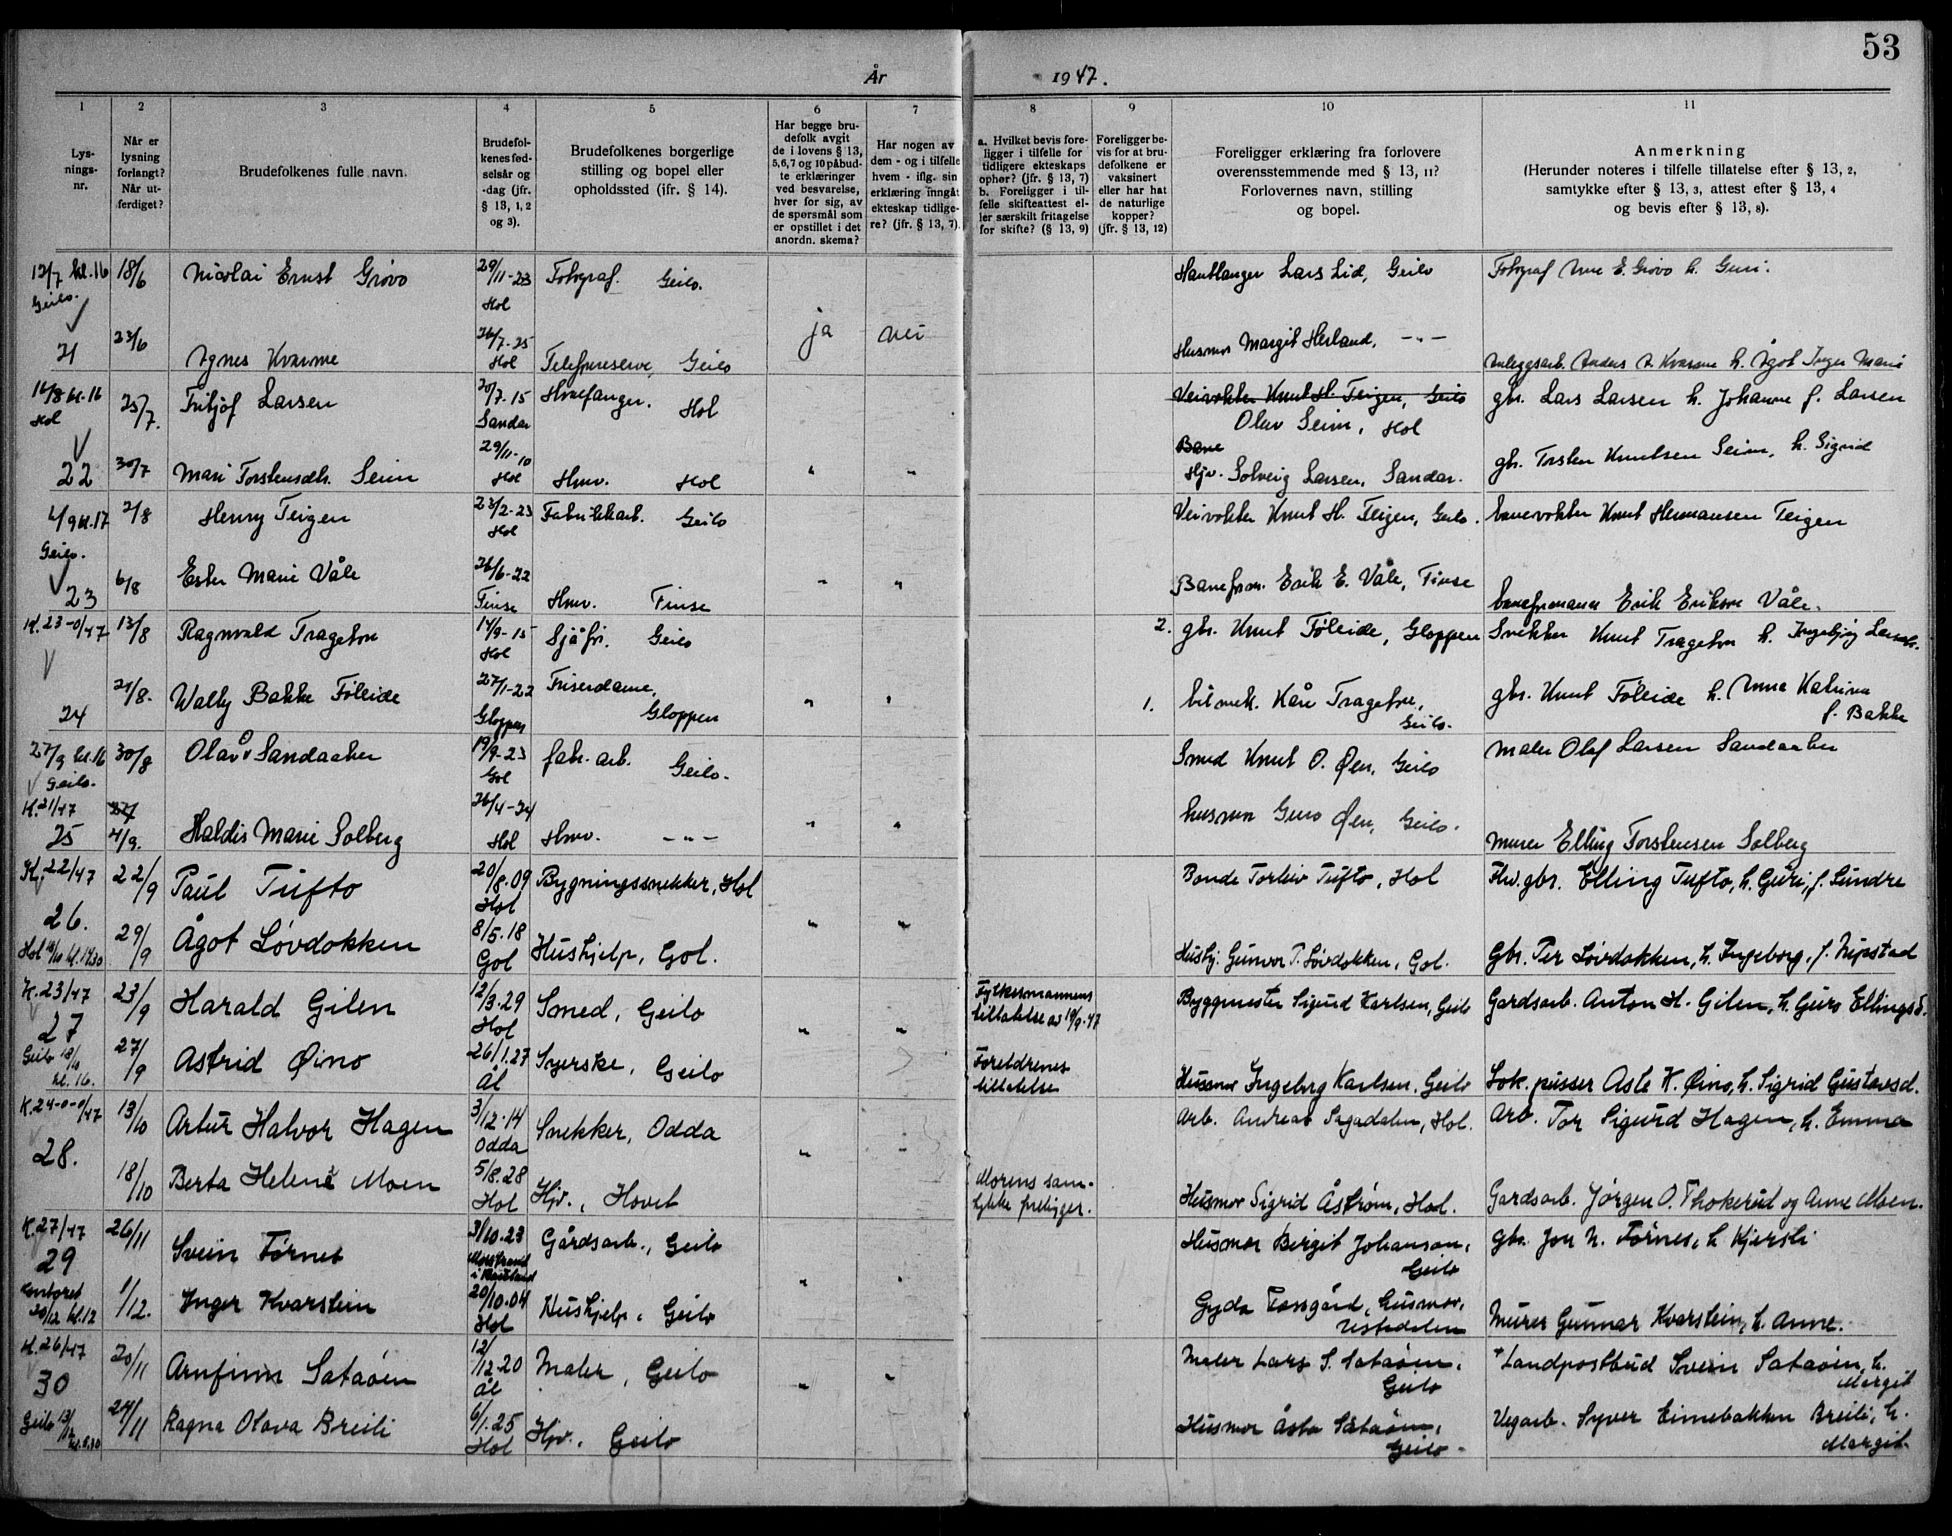 53
År 1947.
1 2 3 4 5 6 7 8 9 10 11
Lys-
nings-
nr.
Når er
lysning
forlangt?
Når ut-
ferdiget?
Brudefolkenes fulle navn.
Brudefol-
kenes fød-
selsår og
-dag (jfr.
§ 13, 1, 2
og 3).
Brudefolkenes borgerlige
stilling og bopel eller
opholdssted (ifr. § 14).
Har begge bru-
defolk avgit
de i lovens § 13,
5,6,7 og 10 påbud-
te erklæringer
ved besvarelse,
hver for sig, av
de spørsmål som
er opstillet i det
anordn. skema?
Har nogen av
dem - og i tilfelle
hvem - iflg. sin
erklæring inngåt
ekteskap tidlige-
re? (jfr. § 13, 7).
a. Hvilket bevis fore-
ligger i tilfelle for
tidligere ekteskaps
ophør? (jfr. § 13, 7)
b. Foreligger i til-
felle skifteattest el-
ler særskilt fritagelse
for skifte? (§ 13, 9)
Foreligger be-
vis for at bru-
defolkene er
vaksinert
eller har hat
de naturlige
kopper?
(jfr. § 13, 12)
Foreligger erklæring fra forlovere
overensstemmende med § 13, 11?
Forlovernes navn, stilling
og bopel.
Anmerkning
(Herunder noteres i tilfelle tillatelse efter § 13, 2,
samtykke efter § 13, 3, attest efter § 13, 4
og bevis efter § 13, 8).
12/7 kl. 16 18/6 Nicolai Ernst Grøvo 29/11-23 Fotograf. Geilo. Hantlanger Lars Lid, Geilo Fotograf Arne E. Grøvo h. Guri.
Geilo. Hol
ja nei
21 23/6 Agnes Kvarme 26/7-25 Hol Telefonserve, Geilo Husmor Margit Herland, -"- Anleggsarb. Anders A. Kvarme h. Ågot Inger Marie
16/8 kl. 16 25/7. Fritjof Larsen 20/7-15 Hvalfanger. Hol Veivokter Knut H. Teigen, Geilo gbr. Lars Larsen h. Johanne f. Larsen
Hol Sandar Olav Seim, Hol
Bane
22 30/7 Mari Torstensdtr. Seim 29/11-10 Hol Hmv. Hol " " Hjv. Solveig Larsen, Sandar. gbr. Torsten Knutsen Seim, h. Sigrid
6/9 kl. 17 2/8 Henry Teigen 23/2-23 Hol Fabrikkarb. Geilo Veivokter Knut H. Teigen, Geilo. banevokter Knut Hermansen Teigen
Geilo.
23 6/8 Ester Marie Våle 26/6-22 Finse Hmv. Finse " " Baneform. Erik E. Våle, Finse baneformann Erik Eriksen Våle.
K. 23-0/47 13/8 Ragnvald Trageton 14/9-15 Hol Sjåfør. Geilo 2. gbr. Knut Føleide, Gloppen Snekker Knut Trageton h. Ingebjørg Larsdtr.
24 21/8. Wally Bakke Føleide 27/1-22 Gloppen Friserdame, Gloppen " " 1. bilmek. Kåre Trageton, Geilo. gbr. Knut Føleide h. Anna Katrina f. Bakke
27/9 kl. 16 30/8 Olav Å Sandaaker 19/9-23 Gol fabr. arb. Geilo. Smed Knut O. Øen, Geilo Maler Olaf Larsen Sandaaker
Geilo.
K. 21/47
25 4/9. Haldis Marie Solberg 26/4-24 Hol Hmv. -"- " " husmor Guro Øen, Geilo. Murer Elling Torstensen Solberg
K. 22/47 22/9 Paul Tufto 20/8.09 Hol Bygningssnekker, Hol Bonde Torleiv Tufto, Hol Fhv. gbr. Elling Tufto, h. Guri, f. Sundre
26. 29/9 Ågot Løvdokken 8/5.18 Gol Hushjelp, Gol. " " Hushj. Gunvor P. Løvdokken, Gol. Gbr. Per Løvdokken, h. Ingeborg, f. Nipstad
Hol 18/10 kl. 14.30
K. 23/47 23/9 Harald Gilen 12/3.29 Hol Smed, Geilo " " Fylkesmannens tillatelse av 19/9-47 Byggmester Sigurd Karlsen, Geilo Gardsarb. Anton H. Gilen, h. Guro Ellingsd.
27
Geilo 18/10 kl. 16. 27/9 Astrid Øino 26/1.27 Ål Syerske, Geilo Foreldrenes tillatelse Husmor Ingeborg Karlsen, Geilo Lok. pusser Asle K. Øino, h. Sigrid Gustavsd.
K. 24-0-0/47 13/10 Artur Halvor Hagen 3/12.14 Odda Snekker, Odda " " Arb. Andreas Sygadalen, Hol. Arb. Tor Sigurd Hagen, h. Emma
28.
18/10 Berta Helene Moen 5/8.28 Hol Hjv., Hovet Morens sam-
tykke foreligger. Husmor Sigrid Åstrøm, Hol. Gardsarb. Jørgen O. Thokerud og Anne Moen.
K. 27/47 26/11 Svein Førnes 3/10.23 Gårdsarb., Geilo Husmor Birgit Johanson, Geilo gbr. Jon N. Førnes, h. Kjersti
29
Kontoret
20/12 kl. 12 1/12. Inger Kvarstein 20/10.04 Hol Hushjelp, Geilo " " Gyda Fossgård, husmor, Ustedalen Murer Gunnar Kvarstein, h. Anne.
K. 26/47 20/11 Arnfinn Sataøen 12/12.20 Ål Maler, Geilo " " Maler Lars S. Sataøen, Geilo +Landpostbud Svein Sataøen, h. Margit
30
Geilo 13/12 kl. 8.30 24/11 Ragna Olava Breili 6/1.25 Hol Hjv., Geilo Husmor Åsta Sataøen, Geilo. Vegarb. Syver Eimebakken Breili, h. Margit.